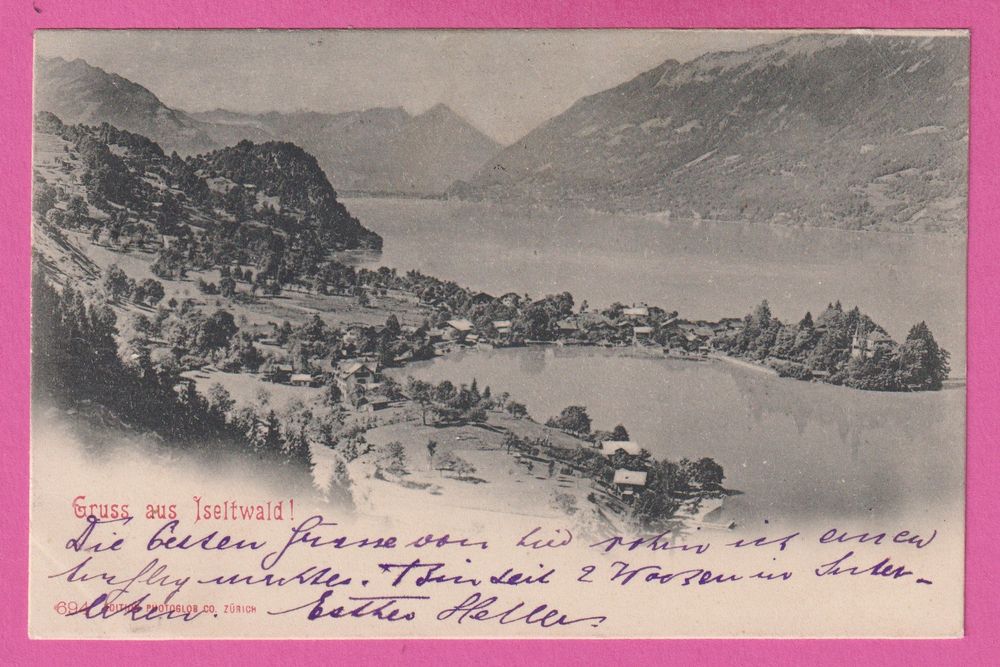 Gruss aus Iseltwald!
Die besten Grüsse von hier wohin ich einen
Ausflug machte. Bin seit 2 Wochen in Inter-
laken. Esther Heller
694 EDITION PHOTOGLOB CO. ZÜRICH